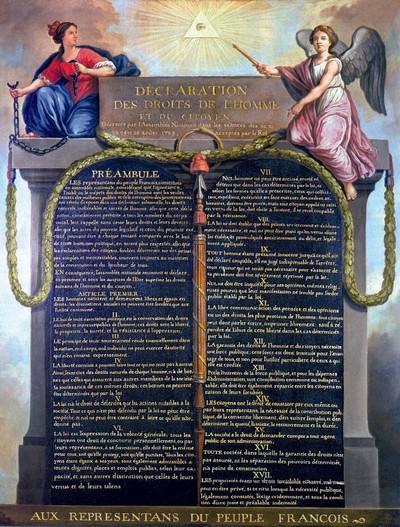 DÉCLARATION
DES DROITS DE L'HOMME
ET DU CITOYEN
Décrétés par l'Assemblée Nationale dans les séances des 20, 21
acceptés par le Roi
PRÉAMBULE
LES représentans du peuple François constitués
en assemblée nationale, considérant que l'ignorance,
l'oubli ou le mépris des droits de l'homme sont les seules
causes des malheurs publics et de la corruption des gouvernemens
ont résolu d'exposer dans une déclaration solemnelle, les droits
naturels, inaliénables et sacrés de l'homme; afin que cette décla-
ration, constamment présente à tous les membres du corps
social, leur rappelle sans cesse leurs droits et leurs devoirs;
afin que les actes du pouvoir législatif et ceux du pouvoir exé-
cutif, pouvant être à chaque instant comparés avec le but
de toute institution politique, en soient plus respectés; afin que
les réclamations des citoyens, fondées désormais sur des princi-
pes simples et incontestables, tournent toujours au maintien de
la constitution et du bonheur de tous.
EN conséquence, l'assemblée nationale reconnoit et déclare
en présence et sous les auspices de l'Être suprême les droits
suivans de l'homme et du citoyen.
ARTICLE PREMIER
LES hommes naissent et demeurent libres et égaux en
droits, les distinctions sociales ne peuvent être fondées que sur
l'utilité commune.
II.
LE but de toute association politique est la conservation des droits
naturels et imprescriptibles de l'homme; ces droits sont la liberté,
la propriété, la sureté, et la résistance à l'oppression.
III.
LE principe de toute souveraineté réside essentiellement dans
la nation, nul corps, nul individu ne peut exercer d'autorité
qui n'en émane expressément.
IV.
LA liberté consiste à pouvoir faire tout ce qui ne nuit pas à autrui
Ainsi, l'exercice des droits naturels de chaque homme, n'a de bor-
nes que celles qui assurent aux autres membres de la société
la jouissance de ces mêmes droits; ces bornes ne peuvent
être déterminées que par la loi.
V.
LA loi n'a le droit de défendre que les actions nuisibles à la
société. Tout ce qui n'est pas défendu par la loi ne peut être
empêché, et nul ne peut être contraint à faire ce qu'elle n'or-
donne pas.
VI.
LA loi est l'expression de la volonté générale; tous les
citoyens ont droit de concourir personnellement, ou par
leurs représentans, à sa formation; elle doit être la même
pour tous, soit qu'elle protège, soit qu'elle punisse. Tous les cito-
yens étant égaux à ses yeux, sont également admissibles à
toutes dignités, places et emplois publics, selon leur ca-
pacité, et sans autres distinctions que celles de leurs
vertus et de leurs talens
VII.
NUL homme ne peut être accusé, arrêté ni
détenu que dans les cas déterminés par la loi, et
selon les formes qu'elle a prescrites, ceux qui sollici-
tent, expédient, exécutent ou font exécuter des ordres ar-
bitraires, doivent être punis; mais tout citoyen appelé ou saisi
en vertu de la loi, doit obéir à l'instant, il se rend coupable
par la résistance.
VIII.
LA loi ne doit établir que des peines strictement et évidem-
ment nécessaires, et nul ne peut être puni qu'en vertu d'une
loi établie et promulguée antérieurement au délit, et légale-
ment appliquée.
IX.
TOUT homme étant présumé innocent jusqu'à ce qu'il ait
été déclaré coupable, s'il est jugé indispensable de l'arrêter,
toute rigueur qui ne seroit pas nécessaire pour s'assurer de
sa personne doit être sévèrement réprimée par la loi.
X.
NUL ne doit être inquiété pour ses opinions, mêmes religi-
euses pourvu que leur manifestation ne trouble pas l'ordre
public établi par la loi.
XI.
LA libre communication des pensées et des opinions
est un des droits les plus précieux de l'homme; tout citoyen
peut donc parler, écrire, imprimer librement; sauf à ré-
pondre de l'abus de cette liberté dans les cas déterminés
par la loi.
XII.
LA garantie des droits de l'homme et du citoyen nécessite
une force publique; cette force est donc instituée pour l'avan-
tage de tous, et non pour l'utilité particulière de ceux à qui
elle est confiée.
XIII.
POUR l'entretien de la force publique, et pour les dépenses
d'administration, une contribution commune est indispen-
sable; elle doit être également répartie entre les citoyens en
raison de leurs facultés.
XIV.
LES citoyens ont le droit de constater par eux même ou
par leurs représentans, la nécessité de la contribution pub-
lique, de la consentir librement, d'en suivre l'emploi, et d'en
déterminer la quotité, l'assiette, le recouvrement et la durée.
XV.
LA société a le droit de demander compte à tout agent
public de son administration.
TOUTE société, dans laquelle la garantie des droits n'est
pas assurée, ni la séparation des pouvoirs déterminée,
n'a point de constitution.
XVII.
LES propriétés étant un droit inviolable et sacré, nul ne
peut en être privé, si ce n'est lorsque la nécessité publique,
légalement constatée, l'exige évidemment, et sous la condi-
tion d'une juste et préalable indemnité
AUX REPRESENTANS DU PEUPLE FRANCOIS